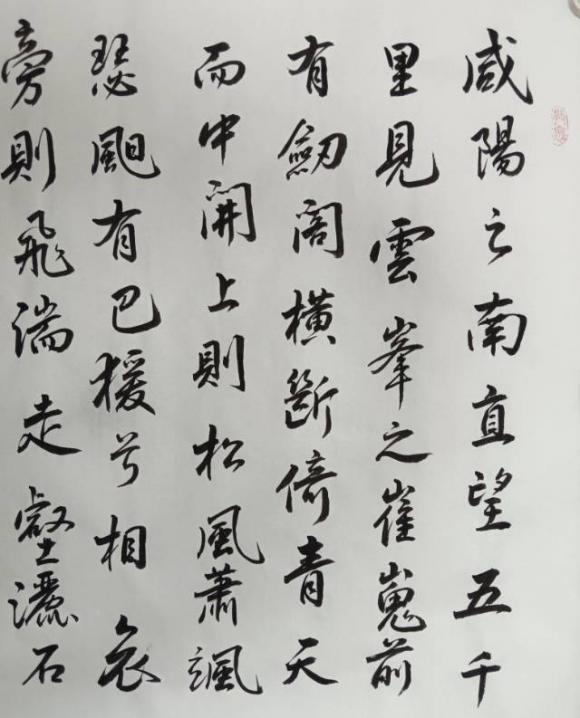 咸陽之南直望五千
里見雲峯之崔嵬前
有劔閣橫斷倚青天
而中開上則松風蕭颯
瑟䫻有巴猨兮相哀
旁則飛湍走壑灑石